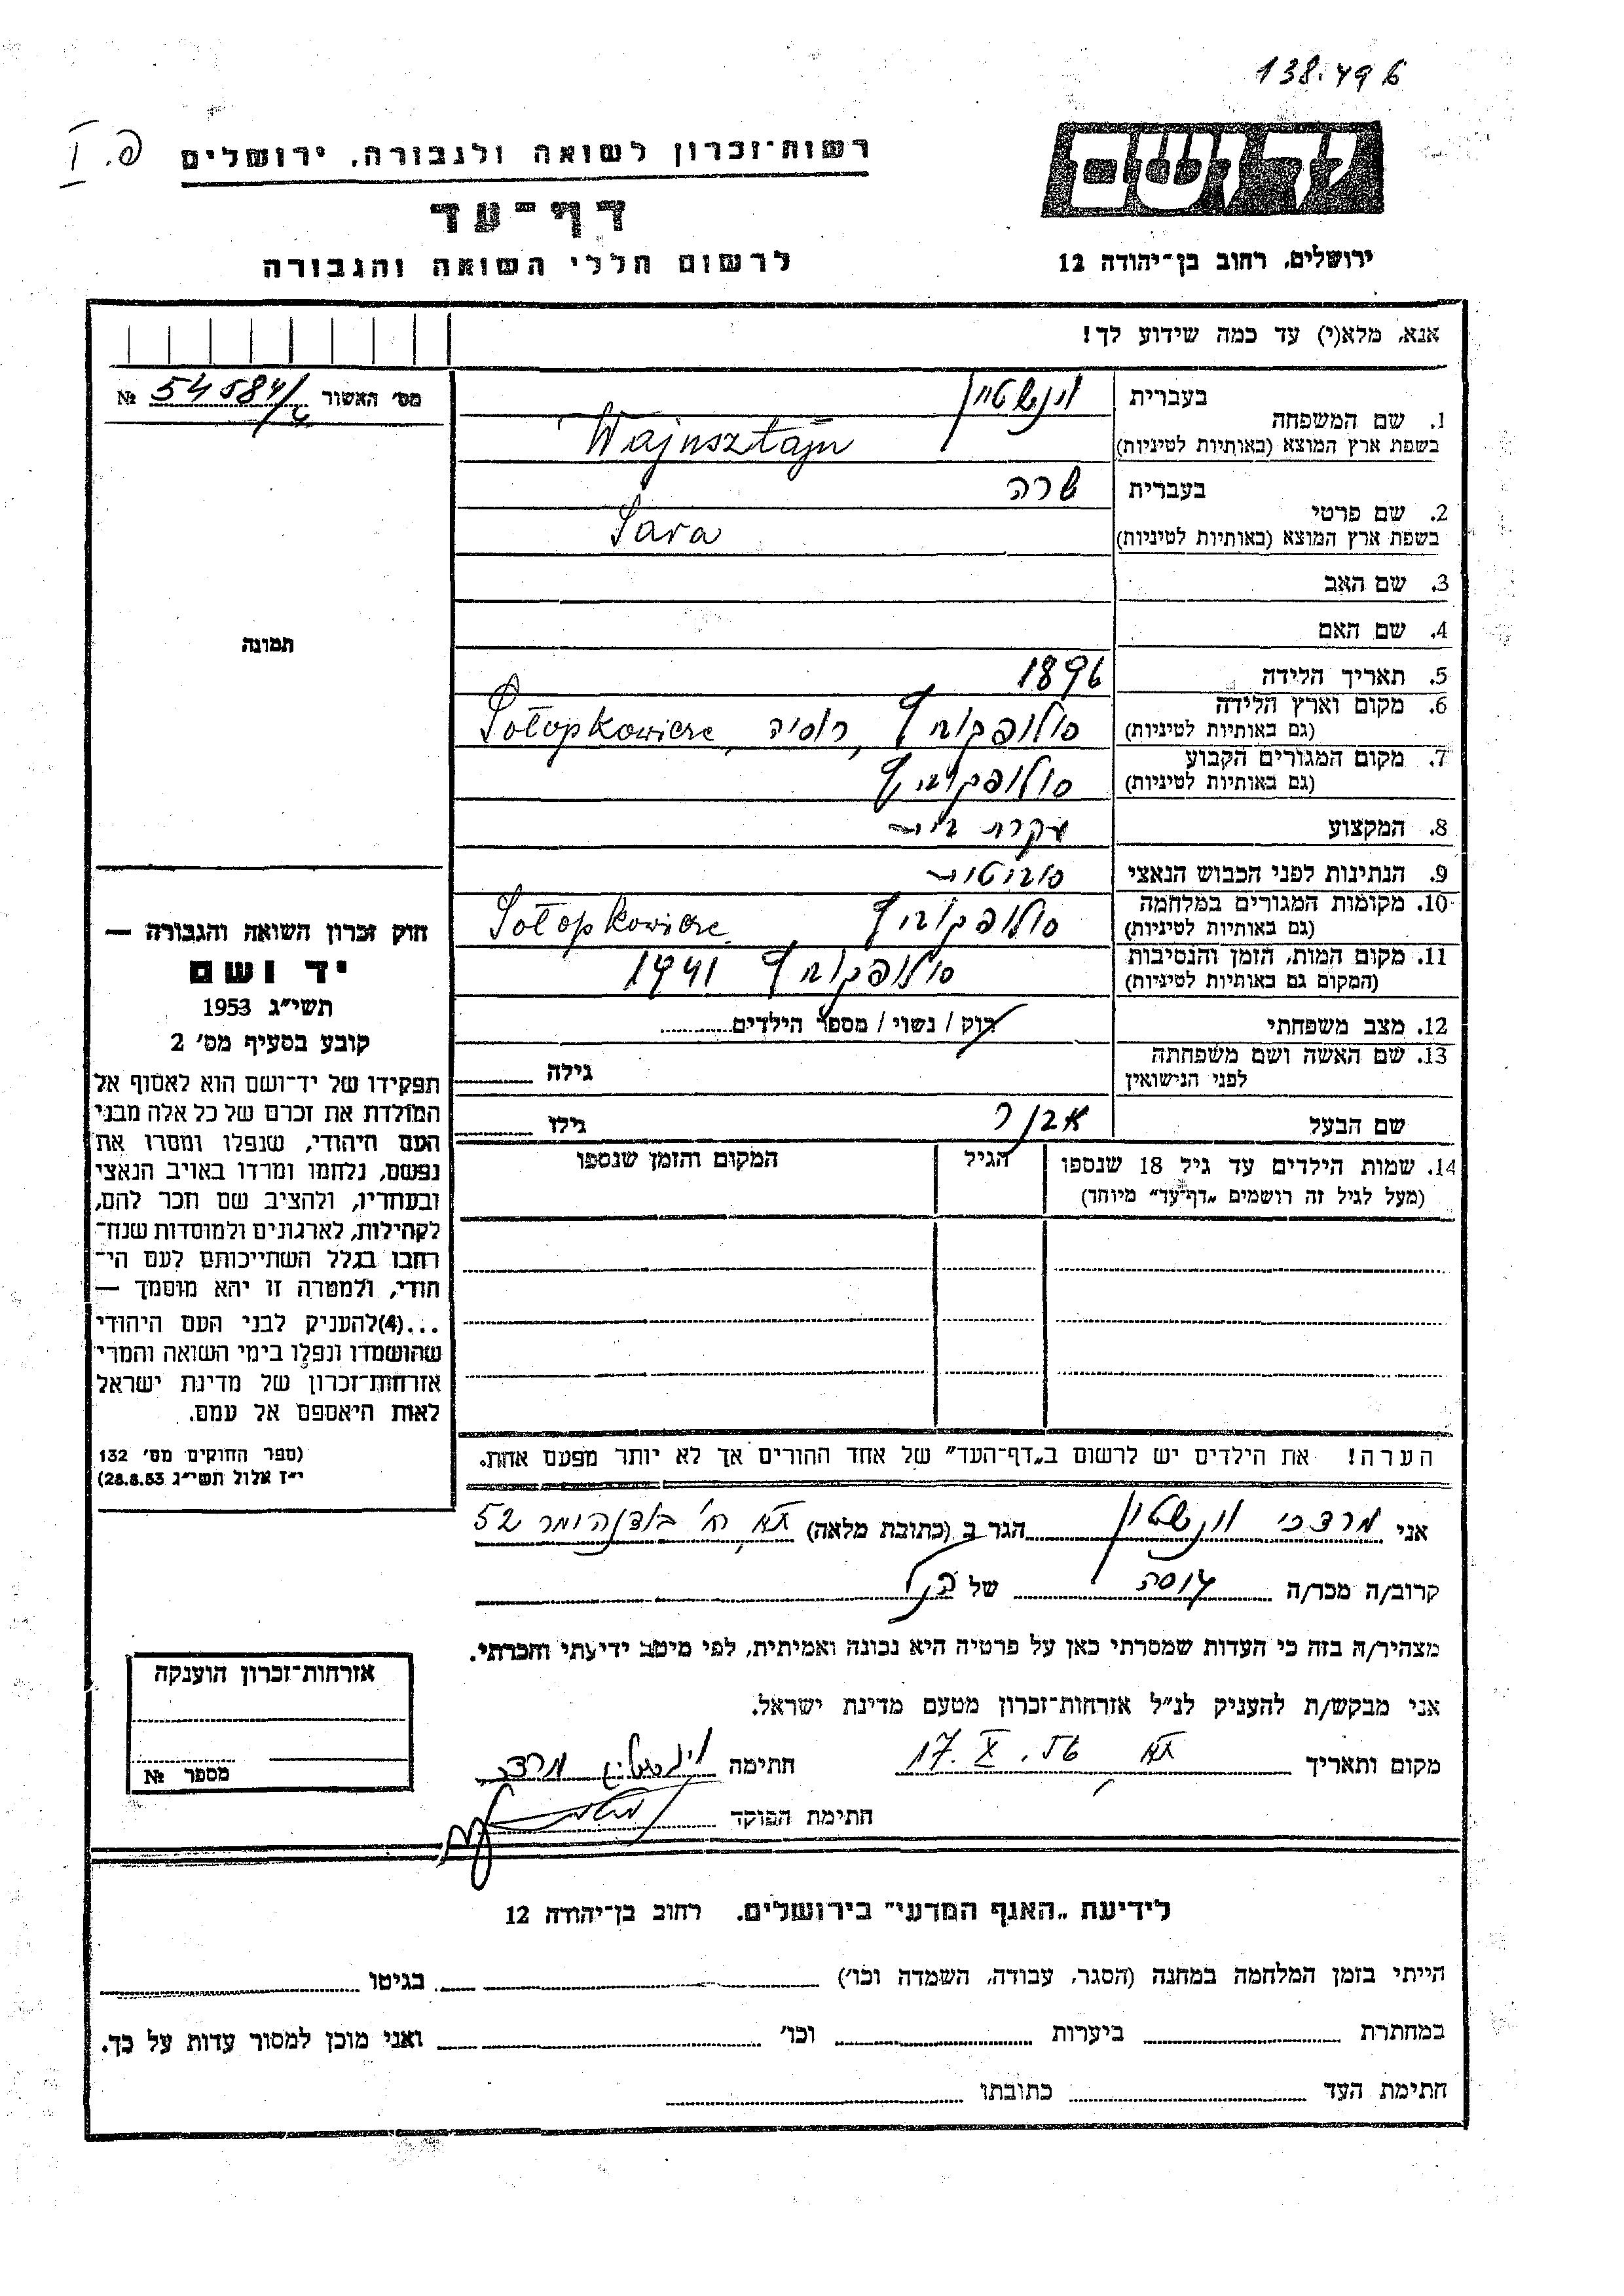 138.496
פ. I
רשות־זכרון לשואה ולגבורה, ירושלים
דף־עד
לרשום חללי השואה והגבורה
יד ושם
ירושלים, רחוב בן־יהודה 12
אנא, מלא(י) עד כמה שידוע לך!
מס׳ האשור 54584/ №
1. שם המשפחה
בעברית
וינשטיין
בשפת ארץ המוצא (באותיות לטיניות)
Wajnsztajn
2. שם פרטי
בעברית
שרה
בשפת ארץ המוצא (באותיות לטיניות)
Sara
3. שם האב
4. שם האם
5. תאריך הלידה 1896
6. מקום וארץ הלידה
(גם באותיות לטיניות)
סולופקוביץ, רוסיה, Sołopkowicze
7. מקום המגורים הקבוע
(גם באותיות לטיניות)
סולופקוביץ
8. המקצוע עקרת בית
9. הנתינות לפני הכבוש הנאצי סוביטית
10. מקומות המגורים במלחמה
(גם באותיות לטיניות)
סולופקוביץ Sołopkowicze
11. מקום המות, הזמן והנסיבות
(המקום גם באותיות לטיניות)
סולופקוביץ 1941
12. מצב משפחתי רוק / נשוי / מספר הילדים
13. שם האשה ושם משפחתה
לפני הנישואין
גילה
שם הבעל אבנר גילו
14. שמות הילדים עד גיל 18 שנספו הגיל המקום והזמן שנספו
(מעל לגיל זה רושמים „דף־עד״ מיוחד)
הערה! את הילדים יש לרשום ב„דף־העד״ של אחד ההורים אך לא יותר מפעם אחת.
תמונה
חוק זכרון השואה והגבורה —
יד ושם
תשי״ג 1953
קובע בסעיף מס׳ 2
תפקידו של יד־ושם הוא לאסוף אל
המולדת את זכרם של כל אלה מבני
העם היהודי, שנפלו ומסרו את
נפשם, נלחמו ומרדו באויב הנאצי
ובעוזריו, ולהציב שם וזכר להם,
לקהילות, לארגונים ולמוסדות שנח־
רבו בגלל השתייכותם לעם הי־
הודי, ולמטרה זו יהא מוסמך —
...(4)להעניק לבני העם היהודי
שהושמדו ונפלו בימי השואה והמרי
אזרחות־זכרון של מדינת ישראל
לאות היאספם אל עמם.
(ספר החוקים מס׳ 132
י״ז אלול תשי״ג 28.8.53)
אני מרדכי וינשטיין הגר ב (כתובת מלאה) ת״א, רח׳ בודנהימר 52
קרוב/ה מכר/ה של הנ״ל
מצהיר/ה בזה כי העדות שמסרתי כאן על פרטיה היא נכונה ואמיתית, לפי מיטב ידיעתי והכרתי.
אני מבקש/ת להעניק לנ״ל אזרחות־זכרון מטעם מדינת ישראל.
מקום ותאריך ת״א, 17.X.56 חתימה וינשטיין מרדכי
חתימת הפוקד
אזרחות־זכרון הוענקה
מספר №
לידיעת „האגף המדעי״ בירושלים, רחוב בן־יהודה 12
הייתי בזמן המלחמה במחנה (הסגר, עבודה, השמדה וכו׳) בגיטו
במחתרת ביערות וכו׳ ואני מוכן למסור עדות על כך.
חתימת העד כתובתו